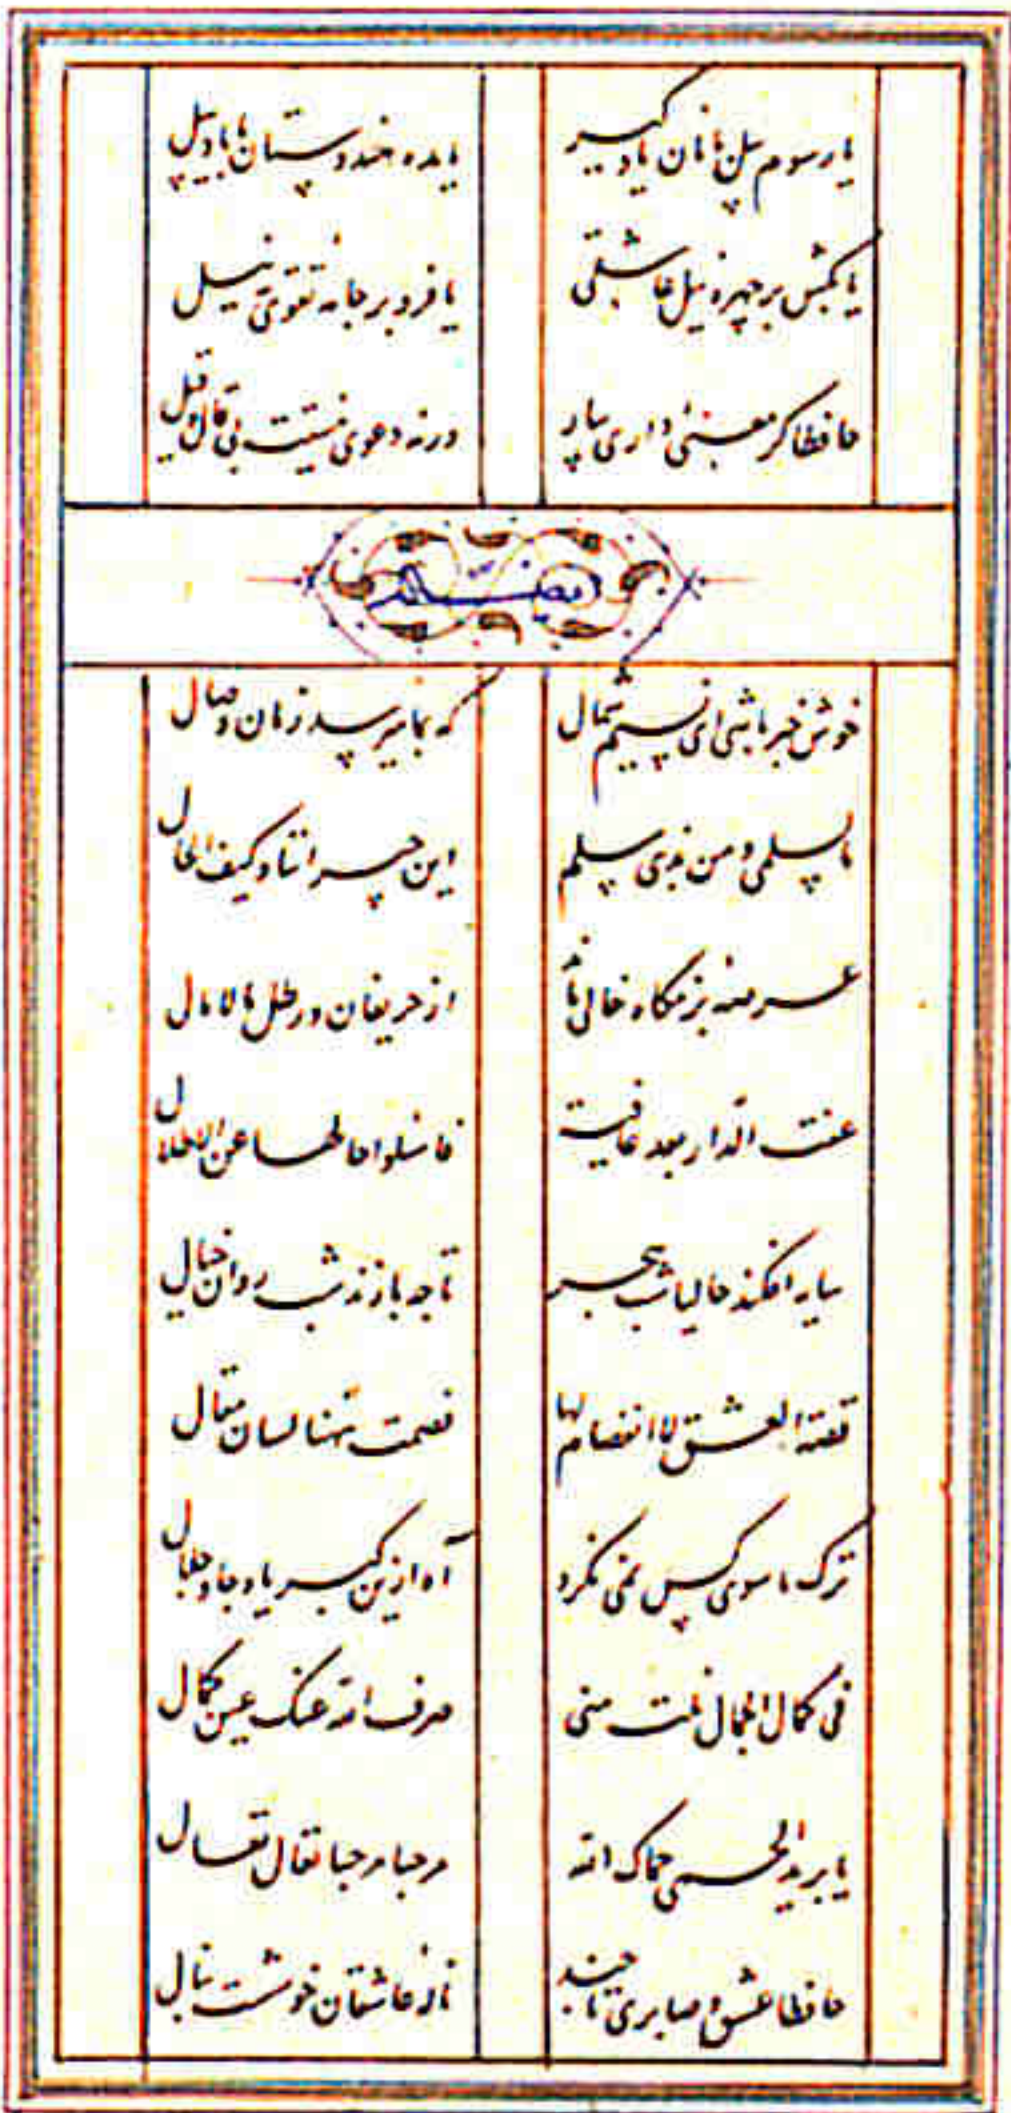 یا رسوم پیل بانان یاد گیر یا مده هندوستان با یاد پیل
یا مکش بر چهره نیل عاشقی یا فرو بر جامه تقوی به نیل
حافظا گر معنئی داری بیار ورنه دعوی نیست بی قال و قیل
ایضا له
خوش خبر باشی ای نسیم شمال که بما میرسد زمان وصال
یا سلمی و من بذی سلم این جیراننا و کیف الحال
عرصه بزمگاه خالی ماند از حریفان و رطل مالامال
عفت الدار بعد عافیة فاسئلوا حالها عن الاطلال
سایه افکند حالیا شب هجر تا چه بازند شب روان خیال
قصة العشق لا انفصام لها فصمت ههنا لسان مقال
ترک ما سوی کس نمی نگرد آه ازین کبریا و جاه و جلال
فی کمال الجمال نلت منی صرف الله عنک عین کمال
یا برید الحمی حماک الله مرحبا مرحبا تعال تعال
حافظا عشق و صابری تا چند ناله عاشقان خوشست بنال